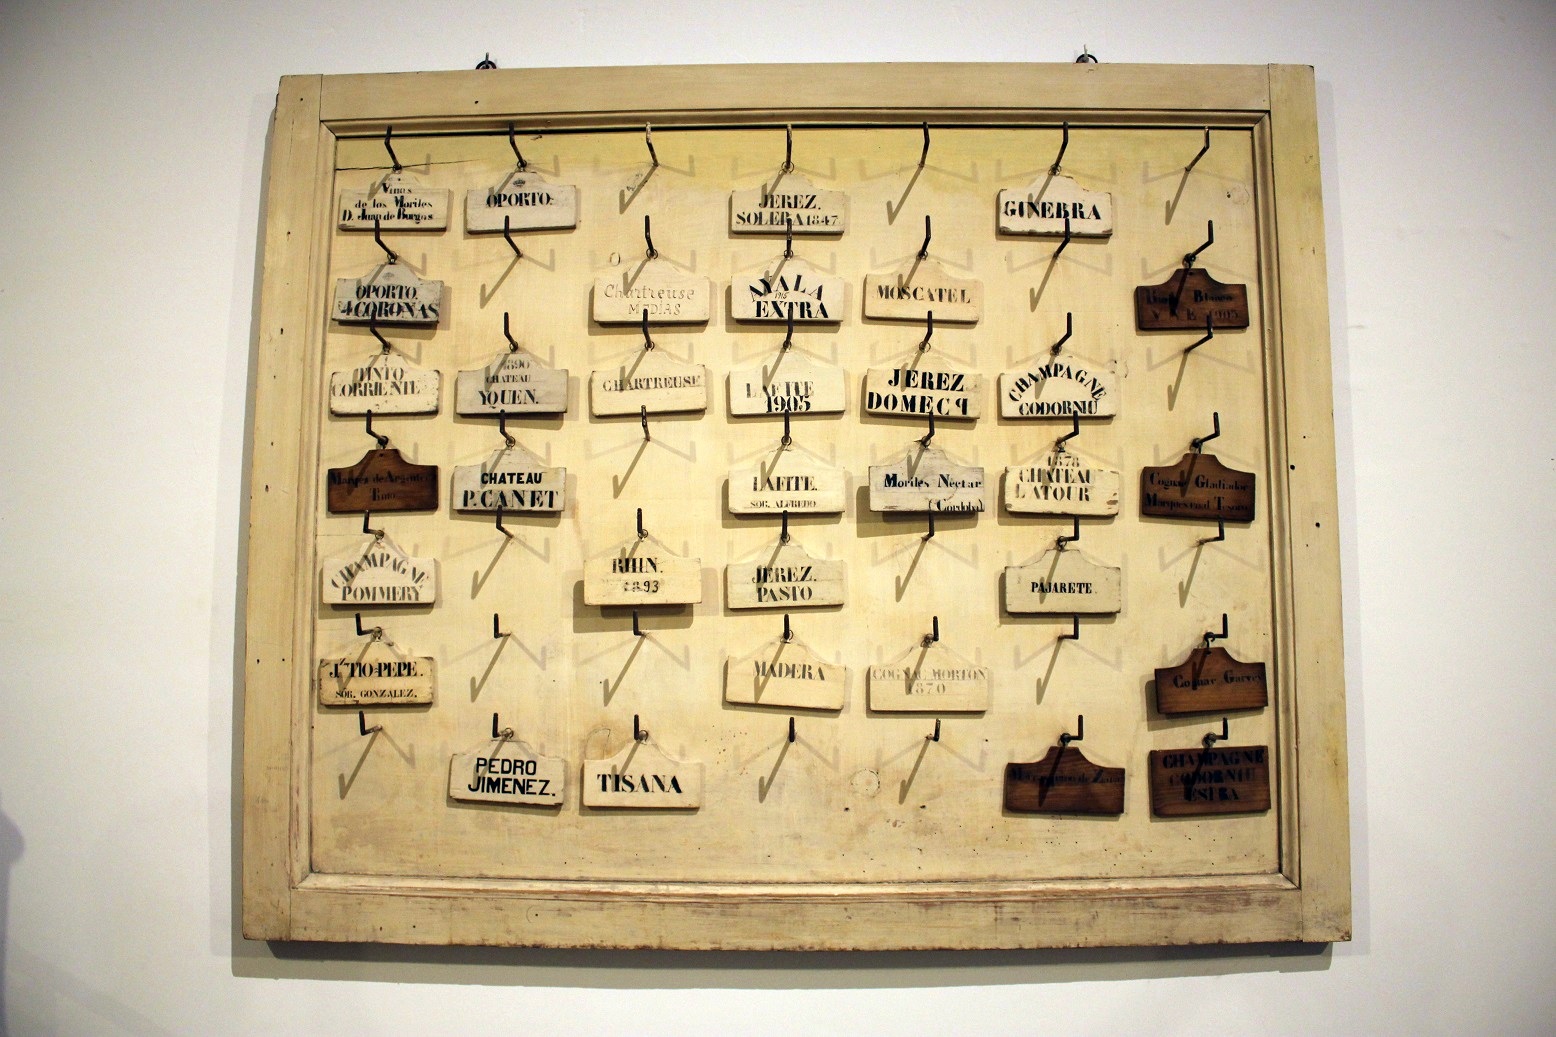 Vinos
de los Moriles
D. Juan de Burgos.
OPORTO.
JEREZ.
SOLERA 1847
GINEBRA
OPORTO.
4 CORONAS
Chartreuse
MEDIAS
AYALA
EXTRA
MOSCATEL
1905
TINTO
CORRIENTE.
1890
CHATEAU
YQUEN.
CHARTREUSE
LAFITE
1905
JEREZ
DOMECQ
CHAMPAGNE
CODORNIU
Tinto
CHATEAU
P. CANET
LAFITE.
SOR. ALFREDO
Moriles Nectar
(Cordoba)
1878
CHATEAU
LATOUR
Cognac Gladiador
CHAMPAGNE
POMMERY
RHIN.
1893
JEREZ.
PASTO
PAJARETE
Jº TIO-PEPE.
SOR. GONZALEZ.
MADERA
COGNAC MORTON
1870
Cognac Garvey
PEDRO
JIMENEZ.
TISANA
CHAMPAGNE
CODORNIU